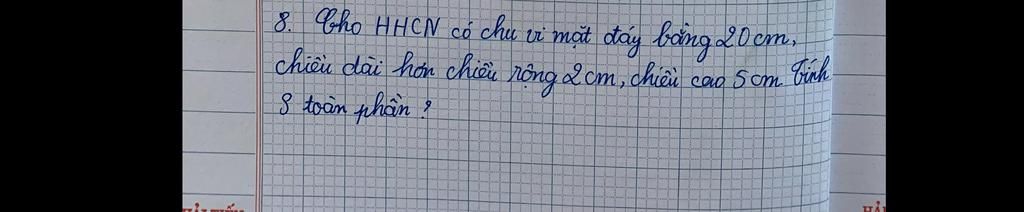 8. Cho HHCN có chu vi mặt đáy bằng 20cm,
chiều dài hơn chiều rộng 2cm, chiều cao 5cm. Tính
S toàn phần?